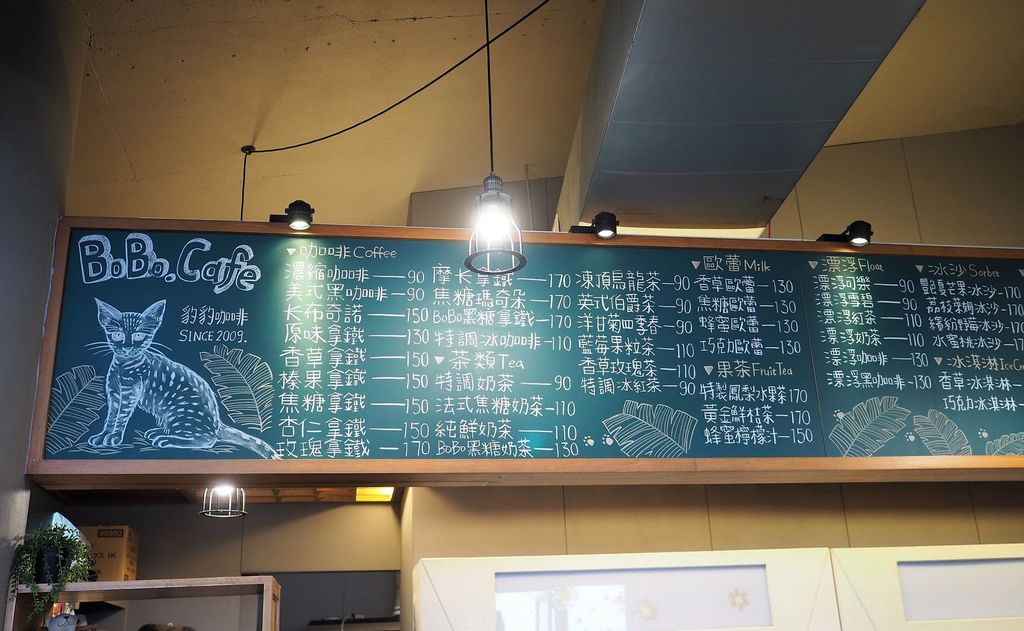 BoBo.Caffe
豹豹咖啡
SINCE 2009.
▼咖啡Coffee
濃縮咖啡—90
美式黑咖啡—90
長布奇諾—150
原味拿鐵—130
香草拿鐵—150
榛果拿鐵—150
焦糖拿鐵—150
杏仁拿鐵—150
玫瑰拿鐵—170
摩卡拿鐵—170
焦糖瑪奇朵—170
BoBo黑糖拿鐵—170
特調冰咖啡—110
▼茶類Tea
特調奶茶—90
法式焦糖奶茶—110
純鮮奶茶—110
BoBo黑糖奶茶—130
凍頂烏龍茶—90
英式伯爵茶—90
洋甘菊四季春—90
藍莓果粒茶—110
香草玫瑰茶—110
特調冰紅茶—90
▼歐蕾Milk
香草歐蕾—130
焦糖歐蕾—130
蜂蜜歐蕾—130
巧克力歐蕾—130
▼果茶FruitTea
特製鳳梨水果170
黃金鮮桔茶—170
蜂蜜檸檬汁—150
▼漂浮Float
漂浮可樂—90
漂浮雪碧—90
漂浮紅茶—110
漂浮奶茶—110
漂浮咖啡—110
漂浮黑咖啡—130
▼冰沙Sorbet
艷夏芒果冰沙—170
荔枝萊姆冰沙—170
繽紛野莓冰沙—170
水蜜桃冰沙—170
▼冰淇淋IceCr
香草冰淇淋—
巧克力冰淇淋—